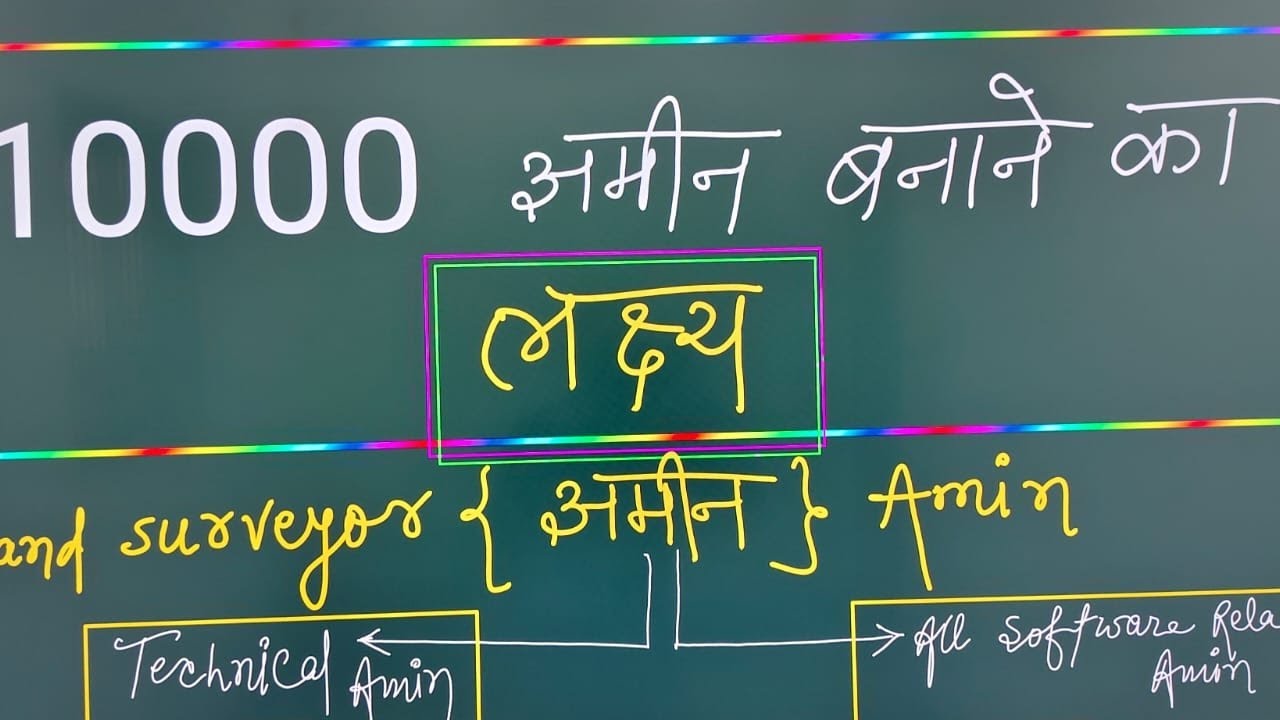 10000 अमीन बनाने का
लक्ष्य
and surveyor { अमीन } Amin
Technical Amin
All Software Rela
Amin